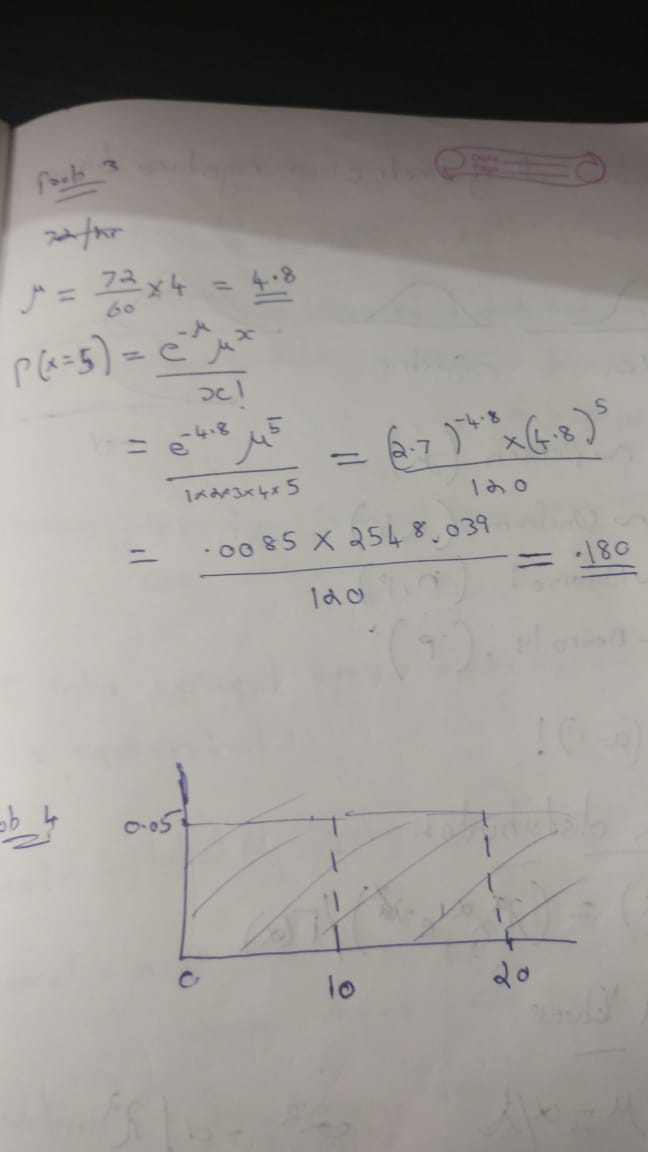 Prob 3
72/hr
μ = 72/60 × 4 = 4.8
P(x=5) = e^-μ μ^x / x!
= e^-4.8 μ^5 / 1×2×3×4×5 = (2.7)^-4.8 × (4.8)^5 / 120
= .0085 × 2548.039 / 120 = .180
ob 4
0.05
0 10 20